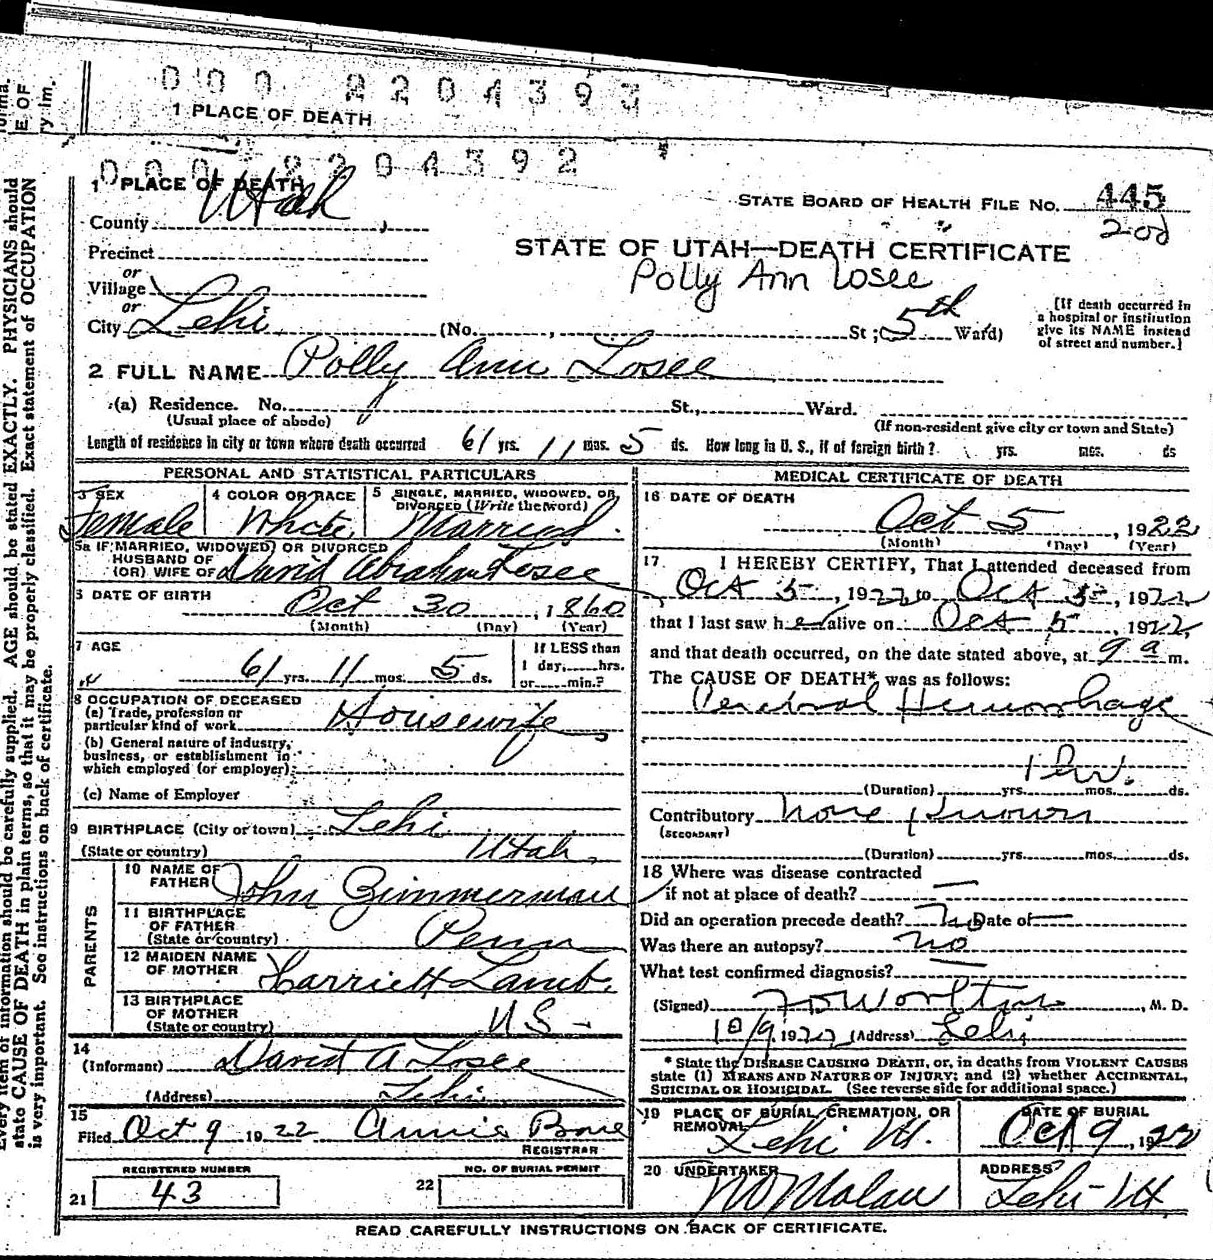 000 2204393
1 PLACE OF DEATH
000 2204392
1 PLACE OF DEATH
County Utah
STATE BOARD OF HEALTH FILE NO. 445
200
Precinct
STATE OF UTAH—DEATH CERTIFICATE
or
Village
Polly Ann Losee
or
City Lehi (No. , St; 5th Ward)
[If death occurred in
a hospital or institution
give its NAME instead
of street and number.]
2 FULL NAME Polly Ann Losee
(a) Residence. No. St., Ward.
(Usual place of abode) (If non-resident give city or town and State)
Length of residence in city or town where death occurred 61 yrs. 11 mos. 5 ds. How long in U. S., if of foreign birth? yrs. mos. ds
PERSONAL AND STATISTICAL PARTICULARS
3 SEX
Female
4 COLOR OR RACE
White
5 SINGLE, MARRIED, WIDOWED, OR
DIVORCED (Write the word)
Married
5a IF MARRIED, WIDOWED, OR DIVORCED
HUSBAND OF
(OR) WIFE OF David Abraham Losee
6 DATE OF BIRTH
Oct 30, 1860
(Month) (Day) (Year)
7 AGE
61 yrs. 11 mos. 5 ds.
If LESS than
1 day, hrs.
or min.?
8 OCCUPATION OF DECEASED
(a) Trade, profession or
particular kind of work Housewife
(b) General nature of industry,
business, or establishment in
which employed (or employer)
(c) Name of Employer
9 BIRTHPLACE (City or town) Lehi
(State or country) Utah
PARENTS
10 NAME OF
FATHER John Zimmerman
11 BIRTHPLACE
OF FATHER
(State or country) Penn
12 MAIDEN NAME
OF MOTHER Harriett Lamb
13 BIRTHPLACE
OF MOTHER
(State or country) U S
14
(Informant) David A Losee
(Address) Lehi
15
Filed Oct 9 1922 Annie Bone
REGISTRAR
REGISTERED NUMBER
21 43
NO. OF BURIAL PERMIT
22
MEDICAL CERTIFICATE OF DEATH
16 DATE OF DEATH
Oct 5, 1922
(Month) (Day) (Year)
17 I HEREBY CERTIFY, That I attended deceased from
Oct 5, 1922 to Oct 5, 1922
that I last saw her alive on Oct 5, 1922
and that death occurred, on the date stated above, at 9 a m.
The CAUSE OF DEATH* was as follows:
Cerebral Hemorrhage
1 hr.
(Duration) yrs. mos. ds.
Contributory none known
(SECONDARY)
(Duration) yrs. mos. ds.
18 Where was disease contracted
if not at place of death? —
Did an operation precede death? No Date of —
Was there an autopsy? no
What test confirmed diagnosis? —
(Signed) , M. D.
10/9, 1922 (Address) Lehi
* State the DISEASE CAUSING DEATH, or, in deaths from VIOLENT CAUSES
state (1) MEANS AND NATURE OF INJURY; and (2) whether ACCIDENTAL,
SUICIDAL OR HOMICIDAL. (See reverse side for additional space.)
19 PLACE OF BURIAL, CREMATION, OR
REMOVAL
Lehi Ut.
DATE OF BURIAL
Oct 9, 1922
20 UNDERTAKER
ADDRESS
Lehi-Ut
READ CAREFULLY INSTRUCTIONS ON BACK OF CERTIFICATE.
Every item of information should be carefully supplied. AGE should be stated EXACTLY. PHYSICIANS should
state CAUSE OF DEATH in plain terms, so that it may be properly classified. Exact statement of OCCUPATION
is very important. See instructions on back of certificate.